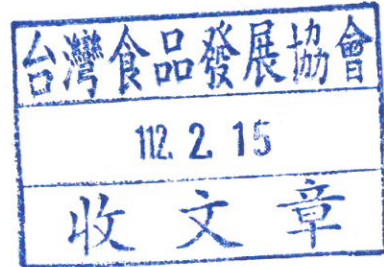 台灣食品發展協會
112. 2. 15
收文章